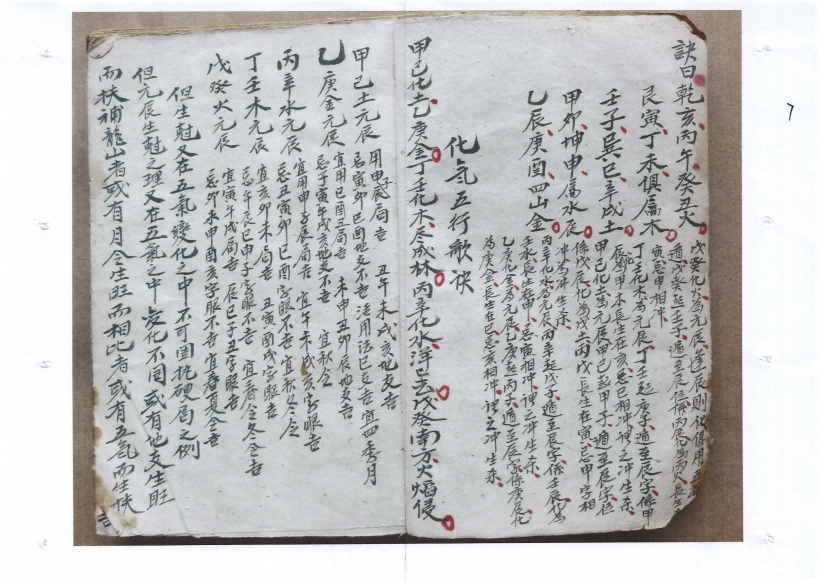 訣曰乾亥丙午癸丑火
戊癸化火為元辰逢辰則化借用
遁戊癸起壬子遁至辰位係丙辰為丙火長生
寅忌申相冲
艮寅丁未俱屬木
丁壬化木為元辰丁壬起庚子遁至辰字係甲
辰甲木長生在亥忌巳相冲謂之冲生杀
壬子巽巳辛戌土
甲己化土為元辰甲己起甲子遁至辰字位
係戊辰化為戊土丙戊長生在寅忌申字相
冲為冲生杀
甲卯坤申屬水辰
丙辛化水為元辰丙辛起戊子遁至辰字係壬辰化為
壬水長生在申忌寅相冲謂之冲生杀
乙辰庚酉四山金
乙庚化金為元辰乙庚起丙子遁至辰字係庚辰化
為庚金長生在巳忌亥相冲謂之冲生杀
化氣五行歌訣
甲己化土乙庚金丁壬化木尽成林丙辛化水洋
戊癸南方火焰侵
甲己土元辰
用甲子辰局吉 丑午未戌亥地支吉
忌寅卯巳酉地支不吉 活用法巳支吉 宜四季月
乙庚金元辰
宜用巳酉丑局吉 未申丑卯辰地支吉
忌子寅午戌亥地支不吉 宜秋令
丙辛水元辰
宜用甲子辰局吉 宜午未戌亥字眼吉
忌丑寅卯巳酉字眼不吉 宜秋冬令
丁壬木元辰
宜亥卯未局吉 丑寅酉戌字眼吉
忌午辰巳申子字眼不吉 宜春令冬令吉
戊癸火元辰
宜寅午戌局吉 辰巳子丑字眼吉
忌卯未申酉亥字眼不吉 宜春夏令吉
但生尅又在五氣變化之中不可固执硬局之例
但元辰生尅之理又在五氣之中变化不同或有地支生旺
而扶補龍山者或有月令生旺而相比者或有五氣而生扶
7